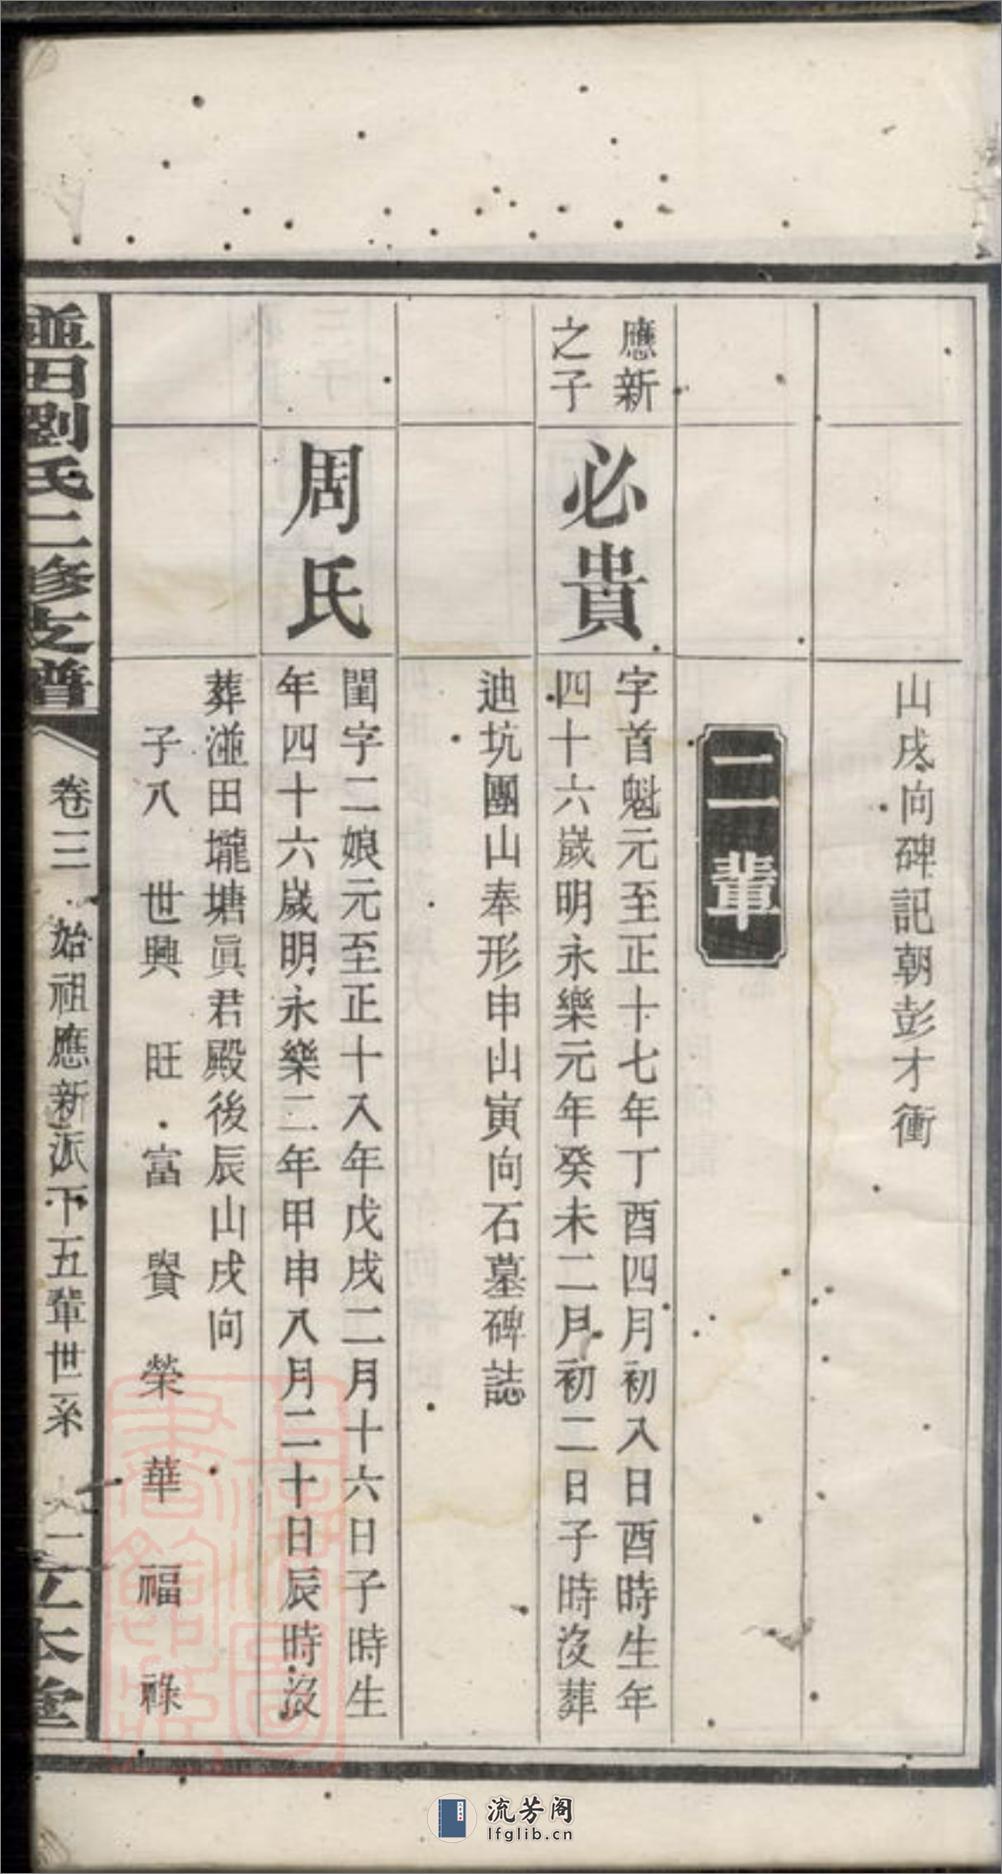 山戌向碑記朝彭才衝
二輩
應新
之子
必貴
字首魁元至正十七年丁酉四月初八日酉時生年
四十六歲明永樂元年癸未二月初二日子時沒葬
迪坑團山奉形申山寅向石墓碑誌
周氏
閨字二娘元至正十八年戊戌二月十六日子時生
年四十六歲明永樂二年甲申八月二十日辰時沒
葬湴田壠塘眞君殿後辰山戌向
子八 世興 旺 富 貴 榮 華 福 祿
湴田劉氏二修支譜
卷三 始祖應新派下五輩世系
立本堂
流芳阁
lfglib.cn